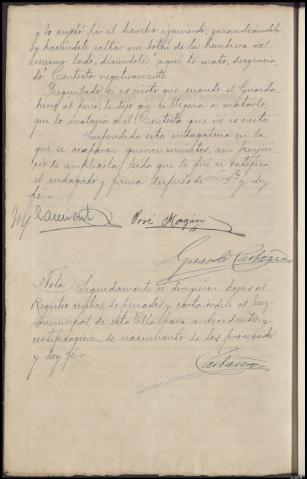 y lo sujetó por el hombro izquierdo, zarandeándolo
y haciéndole saltar un botón de la hombrera del
mismo lado, diciéndole "aquí te mato, desgracia
do". Contesta negativamente.
Preguntado si es cierto que cuando el Guarda
hirió al perro, le dijo que si llegara a matarlo,
que lo mataría a él: Contesta que no es cierto.
Suspendida esta indagatoria en la
que se ocuparon quince minutos, sin perjui
cio de ampliarla, leída que le fué se ratifica
el indagado y firma después de y doy
fé.-
José Magán
Nota. Seguidamente se dirigieron hojas al
Registro central de penados y carta orden al Juez
municipal de esta Villa para antecedentes y
certificaciones de nacimiento de los procesados
y doy fé.-